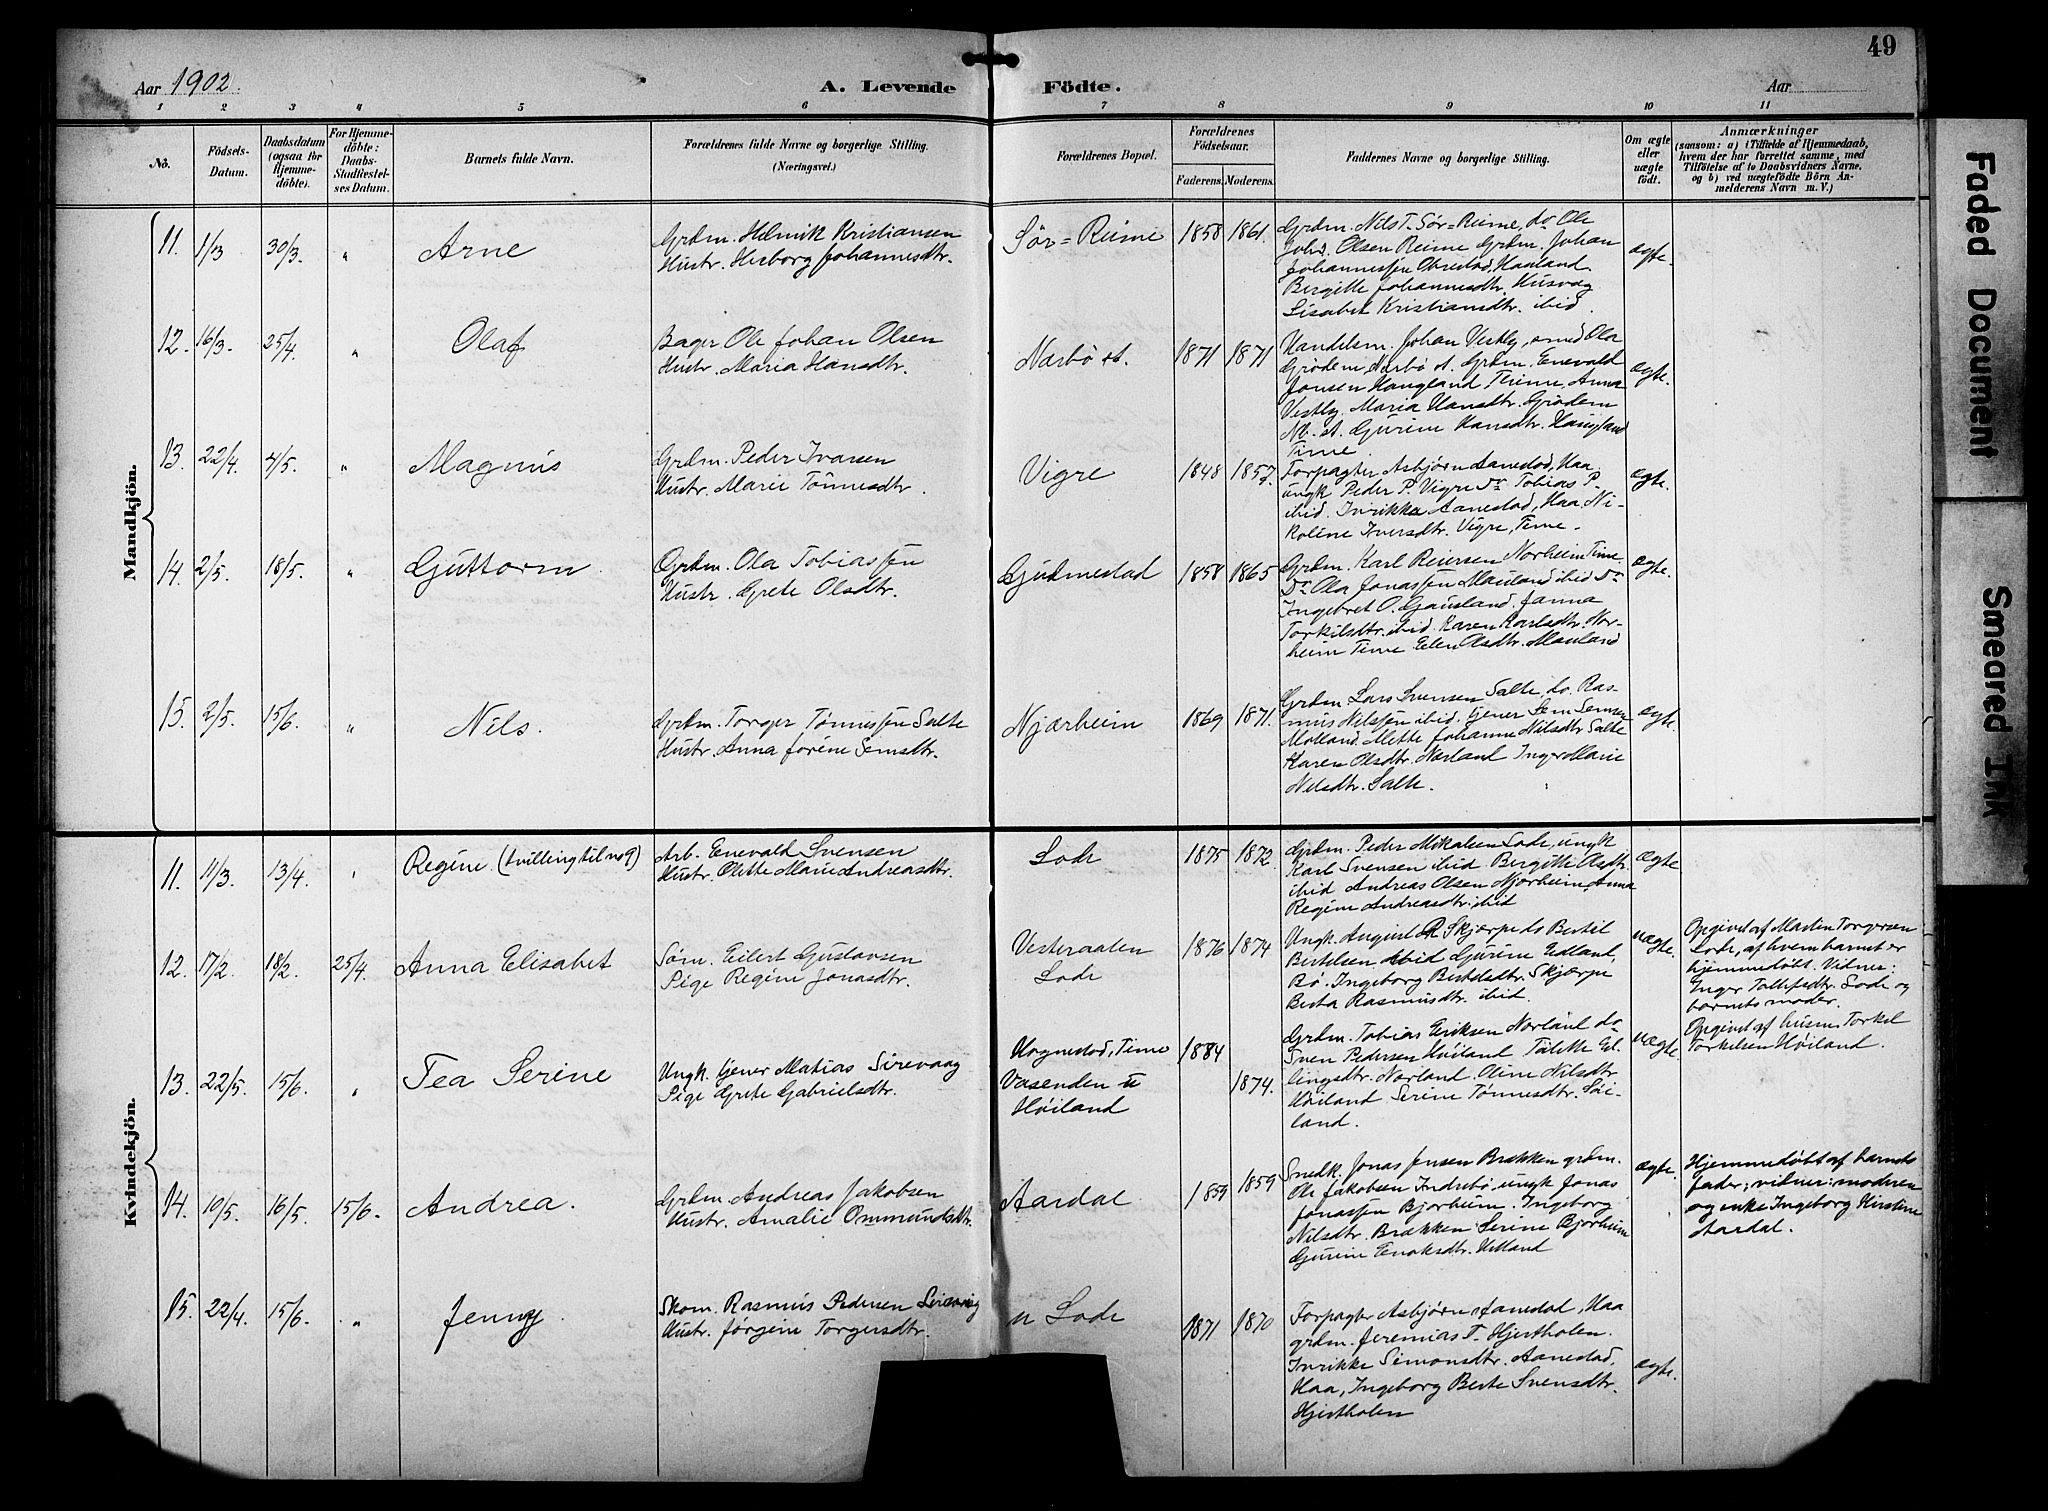 49
Aar 1902.
A. Levende Födte.
Aar
1 2 3 4 5 6 7 8 9 10 11
No.
Födsels-
Datum.
Daabsdatum
(ogsaa for
Hjemme-
döbte).
For Hjemme-
döbte:
Daabs-
Stadfæstel-
ses Datum.
Barnets fulde Navn.
Forældrenes fulde Navne og borgerlige Stilling.
(Næringsvei.)
Forældrenes Bopæl.
Forældrenes
Födselsaar.
Faderens. Moderens.
Faddernes Navne og borgerlige Stilling.
Om ægte
eller
uægte
födt.
Anmærkninger
(saasom: a) i Tilfælde af Hjemmedaab,
hvem der har forrettet samme, med
Tilföielse af to Daabsvidners Navne,
og b) ved uægtefödte Börn An-
melderens Navn m. V.)
Mandkjön.
11. 1/3 30/3. " Arne
Grdm. Helmik Kristiansen
Hustr. Herborg Johannesdtr.
Sör=Reime 1858 1861.
Grdm. Nils T. Sör=Reime, do Ole
Johs. Olsen Reime Grdm. Johan
Johannessen Obrestad, Haaland.
Bergitte Johannesdtr. Husvæg
Lisabet Kristiansdtr. ibid.
ægte.
12. 16/3. 25/4. " Olaf
Bager Ole Johan Olsen
Hustr. Maria Hansdtr.
Narbö st. 1871 1871
Handelsm. Johan Vestly, smed Ola
Grödem, Narbö st. Grdm. Enevald
Jonsen Haugland Time, Anna
Vestly. Maria Hansdtr. Grödem
Nb. st. Gurine Hansdtr. Haugland
Time.
ægte.
13. 22/4. 4/5. " Magnus
Grdm. Peder Ivarsen
Hustr. Marie Tönnesdtr.
Vigre 1848 1857.
Forpagter Asbjörn Aanestad, Haa
ungk Peder P. Vigre Do Tobias P.
ibid. Inrikka Aanestad, Haa, Ni-
koline Iversdtr. Vigre, Time.
ægte.
14. 2/5. 18/5. " Guttorm
Grdm. Ola Tobiassen
Hustr. Grete Olsdtr.
Gudmestad 1858 1865
Grdm. Karl Reiersen Norheim Time
Do Ola Jonassen Mauland ibid Do
Ingebret O. Gausland. Janna
Torkilsdtr. ibid. Karen Karlsdtr. Nor-
heim Time Elen Olsdtr. Mauland
ægte.
15. 2/5. 15/6. " Nils.
Grdm. Torger Tönnessen Salte
Hustr. Anna Jorine Semsdtr.
Njærheim 1869 1871.
Grdm Lars Svensen Salte, do. Ras-
mus Nilssen ibid. tjener Sem Semsen
Motland. Mette Johanne Nilsdtr Salte
Karen Olsdtr. Norland Inger Marie
Nilsdtr. Salte.
ægte.
Kvindekjön.
11. 11/3. 13/4. " Regine (tvilling til no 9)
Arb. Enevald Svensen
Hustr. Olette Marie Andreasdtr.
Lode 1875 1872
Grdm. Peder Mikalsen Lode, ungk
Karl Svensen ibid. Bergitte Olsdtr.
ibid Andreas Olsen Njærheim, Anna
Regine Andreasdtr. ibid
ægte
12. 17/2. 18/2. 25/4. Anna Elisabet
Söm. Eilert Gustavsen
Pige Regine Jonasdtr.
Vesteraalen
Lode
1876 1874
Ungk. August R Skjærpe ds Bertil
Bertelsen ibid Gurine Edland,
Bö. Ingeborg Bertelsdtr. Skjærpe
Berta Rasmusdtr. ibid.
uægte.
Opgivet af Martin Torgersen
Lode, af hvem barnet er
hjemmedöbt. Vidner:
Inger Tollefsdtr. Lode og
barnets moder.
13. 22/5. 15/6. " Tea Serine
Ungk. tjener Matias Sirevaag
Pige Grete Gabrielsdtr.
Hognestad, Time
Vasenden u
Höiland
1884 1874.
Grdm. Tobias Eriksen Norland do
Sven Pedersen Höiland Talette El-
lingsdtr. Norland. Oline Nilsdtr
Höiland Serine Tönnesdtr. Söi-
land.
uægte
Opgivet af husm. Torkel
Torkelsen Höiland.
14. 10/5. 16/5. 15/6. Andrea.
Grdm. Andreas Jakobsen
Hustr. Amalie Ommundsdtr.
Aardal 1859 1859
Snedk. Jonas Jensen Brækken grdm.
Ole Jakobsen Indrebö, ungk Jonas
Jonassen Bjorheim. Ingeborg
Nilsdtr. Brækken. Serine Bjorheim
Gurine Enoksdtr. Hetland
ægte.
Hjemmedöbt af barnets
fader; vidner: moderen
og enke Ingeborg Kirstine
Aardal.
15. 22/4. 15/6. " Jenny
Skom. Rasmus Pedersen Sirevaag
Hustr. Jörgine Torgersdtr.
u Lode 1871 1870
Forpagter Asbjörn Aanestad, Haa
grdm. Jeremias T. Hjertholen.
Inrikke Simonsdtr. Aanestad,
Haa, Ingeborg Berte Svensdtr.
Hjertholen
ægte.
Faded Document
Smeared Ink